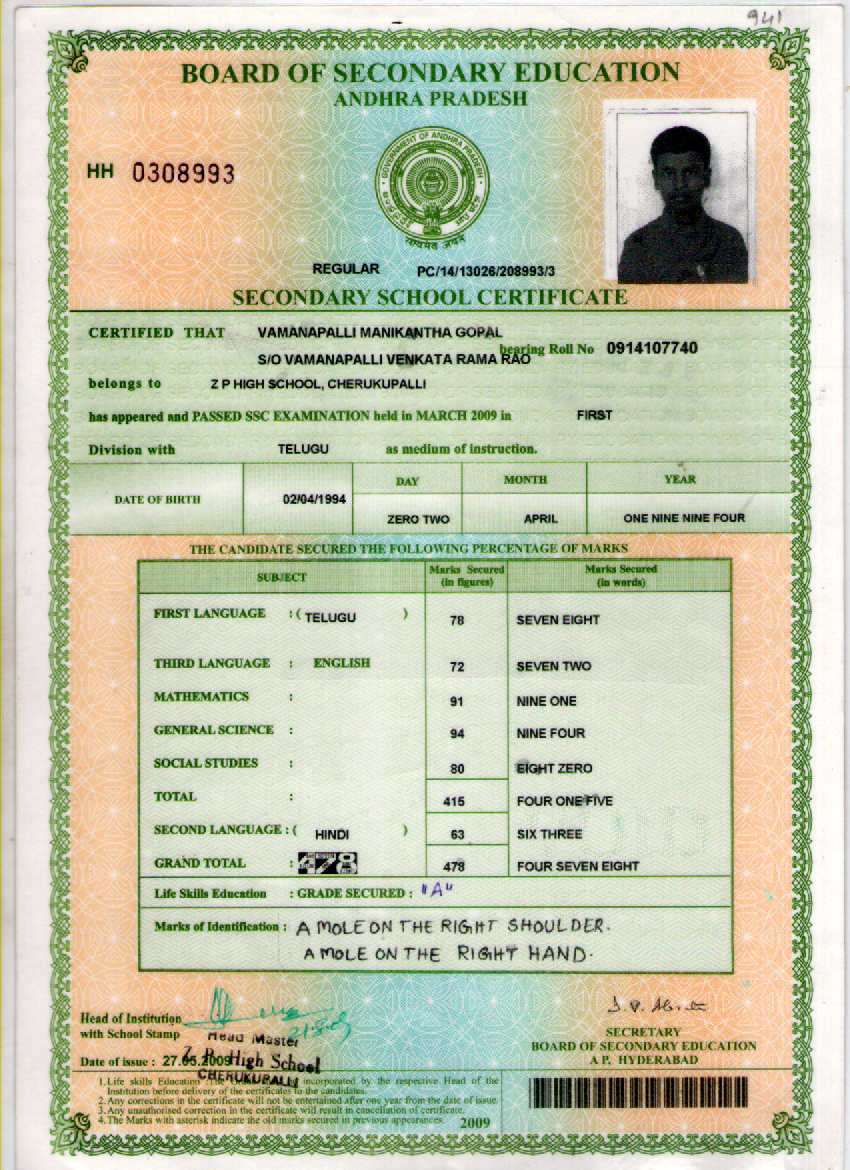 941
BOARD OF SECONDARY EDUCATION
ANDHRA PRADESH
GOVERNMENT OF ANDHRA PRADESH
सत्यमेव जयते
HH 0308993
REGULAR PC/14/13026/208993/3
SECONDARY SCHOOL CERTIFICATE
CERTIFIED THAT VAMANAPALLI MANIKANTHA GOPAL
S/O VAMANAPALLI VENKATA RAMA RAO bearing Roll No 0914107740
belongs to Z P HIGH SCHOOL, CHERUKUPALLI
has appeared and PASSED SSC EXAMINATION held in MARCH 2009 in FIRST
Division with TELUGU as medium of instruction.
DATE OF BIRTH 02/04/1994 DAY MONTH YEAR
ZERO TWO APRIL ONE NINE NINE FOUR
THE CANDIDATE SECURED THE FOLLOWING PERCENTAGE OF MARKS
SUBJECT Marks Secured (in figures) Marks Secured (in words)
FIRST LANGUAGE : ( TELUGU ) 78 SEVEN EIGHT
THIRD LANGUAGE : ENGLISH 72 SEVEN TWO
MATHEMATICS : 91 NINE ONE
GENERAL SCIENCE : 94 NINE FOUR
SOCIAL STUDIES : 80 EIGHT ZERO
TOTAL : 415 FOUR ONE FIVE
SECOND LANGUAGE : ( HINDI ) 63 SIX THREE
GRAND TOTAL : 478 478 FOUR SEVEN EIGHT
Life Skills Education : GRADE SECURED : "A"
Marks of Identification : A MOLE ON THE RIGHT SHOULDER.
A MOLE ON THE RIGHT HAND.
Head of Institution
with School Stamp
21.8.09
Head Master
Z. P. High School
CHERUKUPALLI
Date of issue : 27.05.2009
SECRETARY
BOARD OF SECONDARY EDUCATION
A P, HYDERABAD
1.Life skills Education incorporated by the respective Head of the
Institution before delivery of the certificates to the candidates.
2.Any corrections in the certificate will not be entertained after one year from the date of issue.
3.Any unauthorised correction in the certificate will result in cancellation of certificate.
4.The Marks with asterisk indicate the old marks secured in previous appearances. 2009